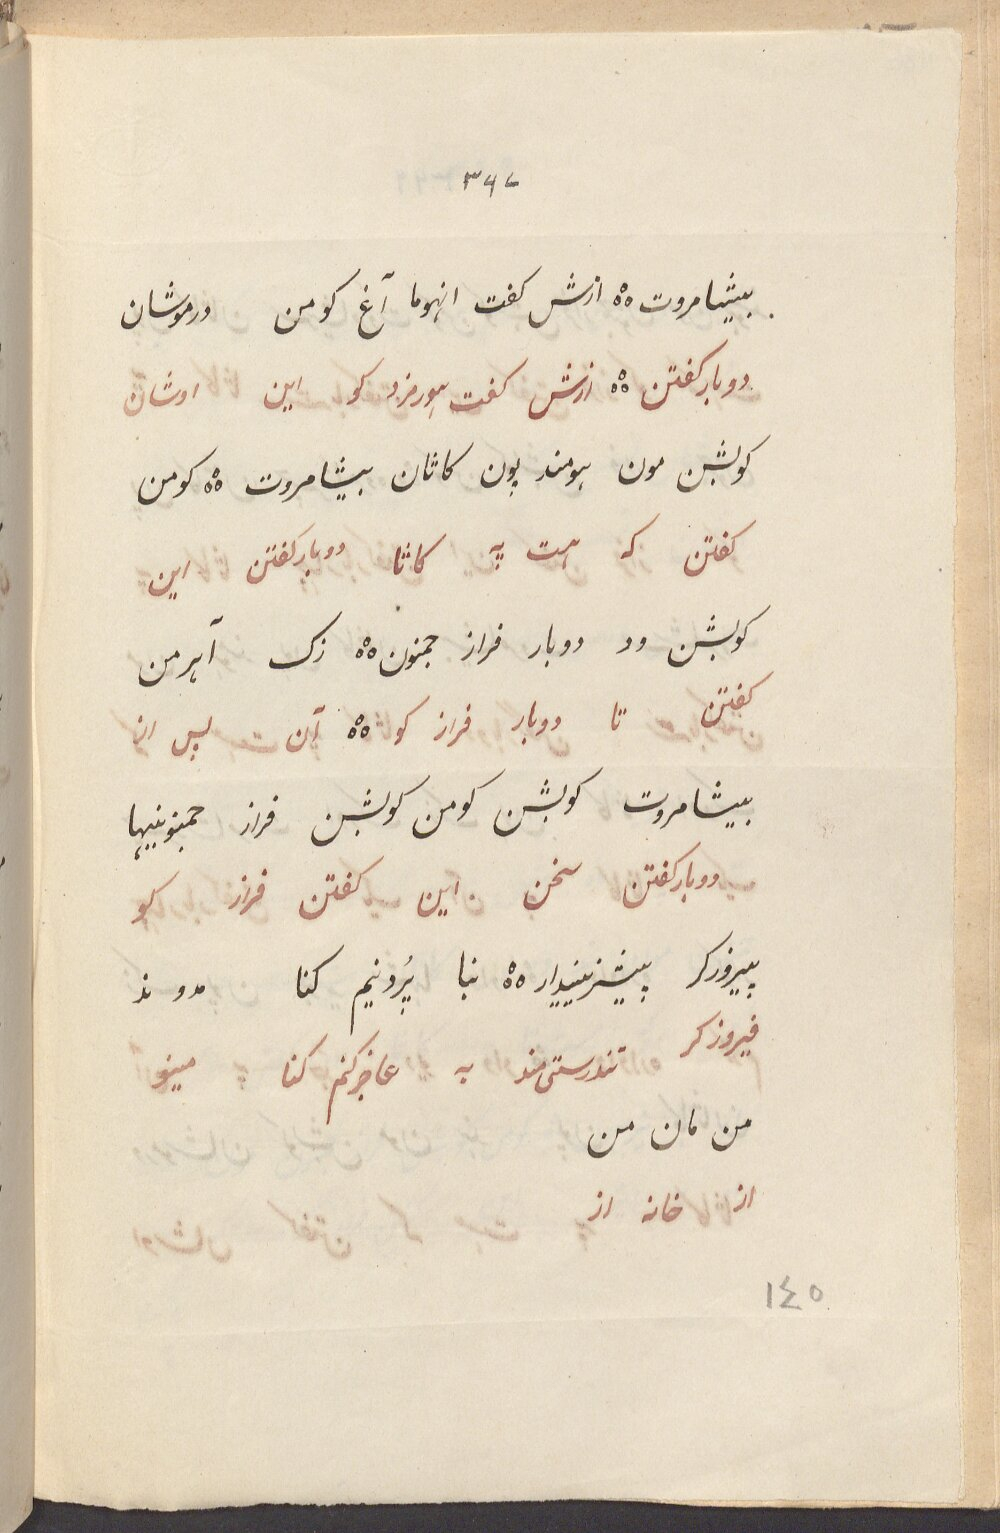 ۳۶۷
بیشامروت ٥٥ ازش کفت انهوما آغ کو من ورموشان
دوبار کفتن ٥٥ ازش کفت هورمزد کو این اوشان
کوبشن مون هومند پون کاثان بیشامروت ٥٥ کو من
کفتن که هست په کاثا دوبار کفتن این
کوبشن ود دوبار فراز جمنون ٥٥ زک آهرمن
کفتن تا دوبار فراز کو ٥٥ آن پس از
بیشامروت کوبشن کو من کوبشن فراز جمنونیها
دوبار کفتن سخن این کفتن فراز کو
پیروزکر ٥٥ نبا کنا
فیروزکر تندرستی‌مند به عاجز کنم کنا مینو
من مان من
از خانه از
١٤٥